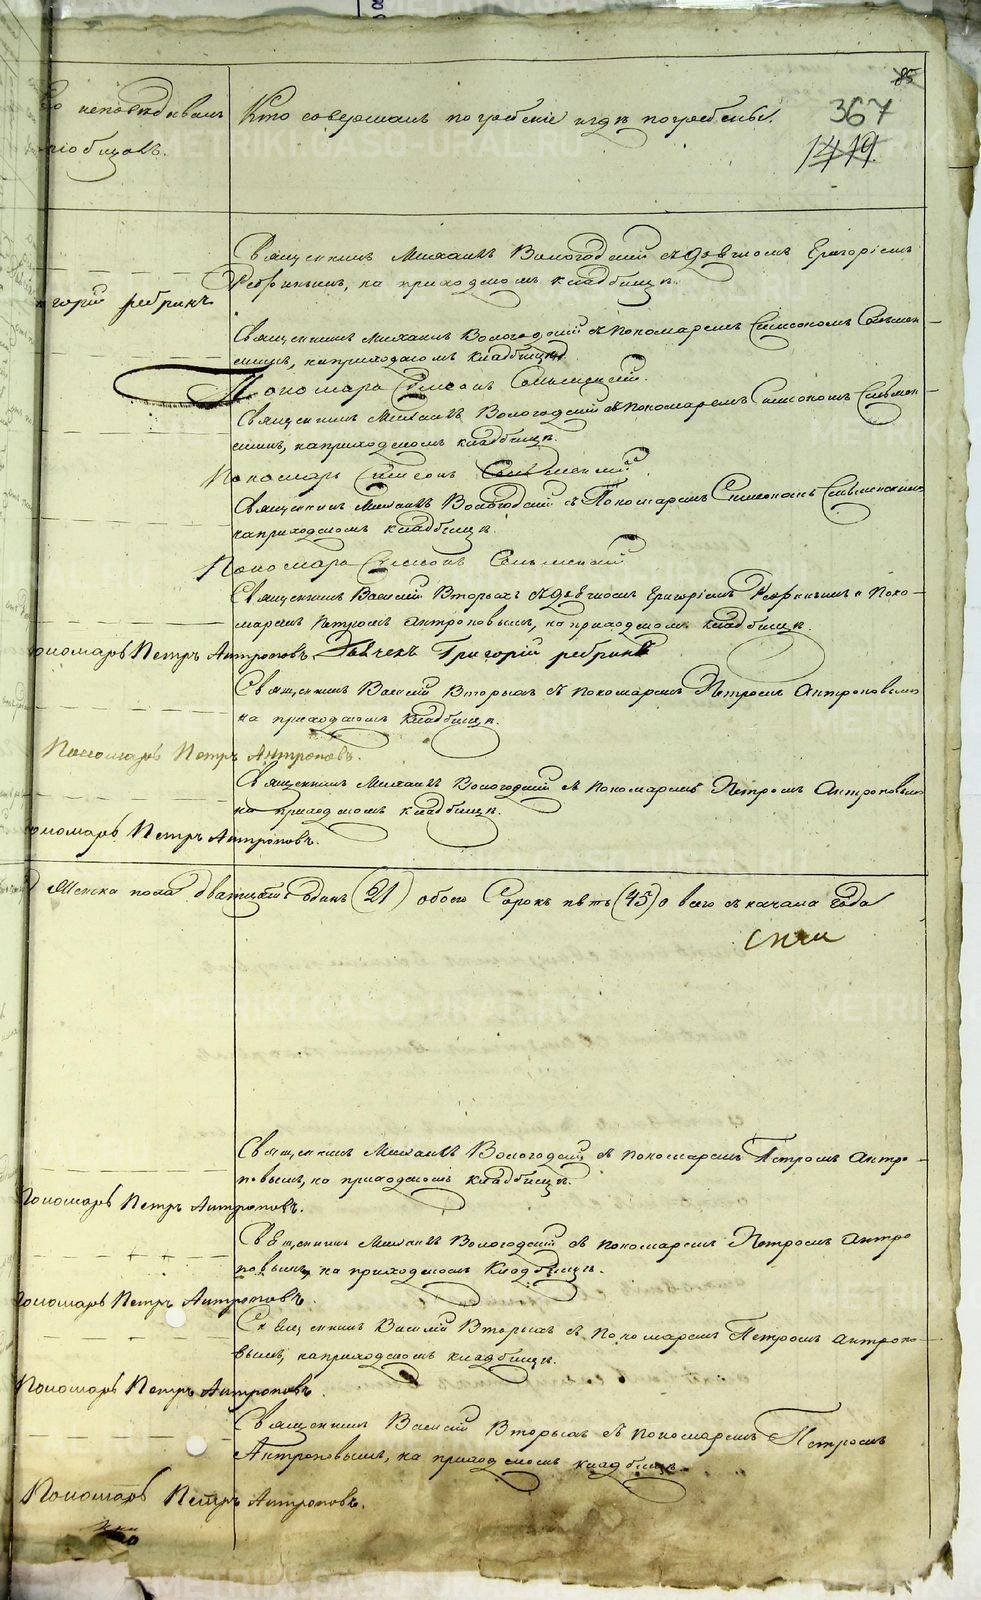 85
367
1419
исповѣдывалъ
Кто совершалъ погребеніе и гдѣ погребены.
Священникъ Михаилъ Вологодскій съ дьячкомъ Григоріемъ
Ребринымъ, на приходскомъ кладбищѣ.
горій ребринъ
Священникъ Михаилъ Вологодскій съ Пономаремъ Симеономъ
на приходскомъ кладбищѣ.
Пономарь Симеонъ
Священникъ Михаилъ Вологодскій съ Пономаремъ Симеономъ
на приходскомъ кладбищѣ.
Пономарь Симеонъ
Священникъ Михаилъ Вологодскій съ Пономаремъ Симеономъ
на приходскомъ кладбищѣ.
Пономарь Симеонъ
Священникъ Василій Вторыхъ съ дьячкомъ Григоріемъ Ребринымъ и Поно-
маремъ Петромъ Антроповымъ, на приходскомъ кладбищѣ.
ономарь Петръ Антроповъ. Дьячекъ Григорій ребринъ
Священникъ Василій Вторыхъ съ пономаремъ Петромъ Антроповымъ
на приходскомъ кладбищѣ.
Пономарь Петръ Антроповъ.
Священникъ Михаилъ Вологодскій съ пономаремъ Петромъ Антроповымъ
на приходскомъ кладбищѣ.
ономарь Петръ Антроповъ.
Женска пола двадцать одинъ (21) обоего Сорокъ пять (45) а всего съ начала года
Священникъ Михаилъ Вологодскій съ пономаремъ Петромъ Антро-
повымъ, на приходскомъ кладбищѣ.
Пономарь Петръ Антроповъ.
Священникъ Михаилъ Вологодскій съ пономаремъ Петромъ Антро
повымъ, на приходскомъ Кладбищѣ.
Пономарь Петръ Антроповъ.
Священникъ Василій Вторыхъ съ пономаремъ Петромъ Антропо-
вымъ, на приходскомъ кладбищѣ.
Пономарь Петръ Антроповъ.
Священникъ Василій Вторыхъ съ пономаремъ Петромъ
Антроповымъ, на приходскомъ кладбищѣ.
Пономарь Петръ Антроповъ.
METRIKI.GASO-URAL.RU